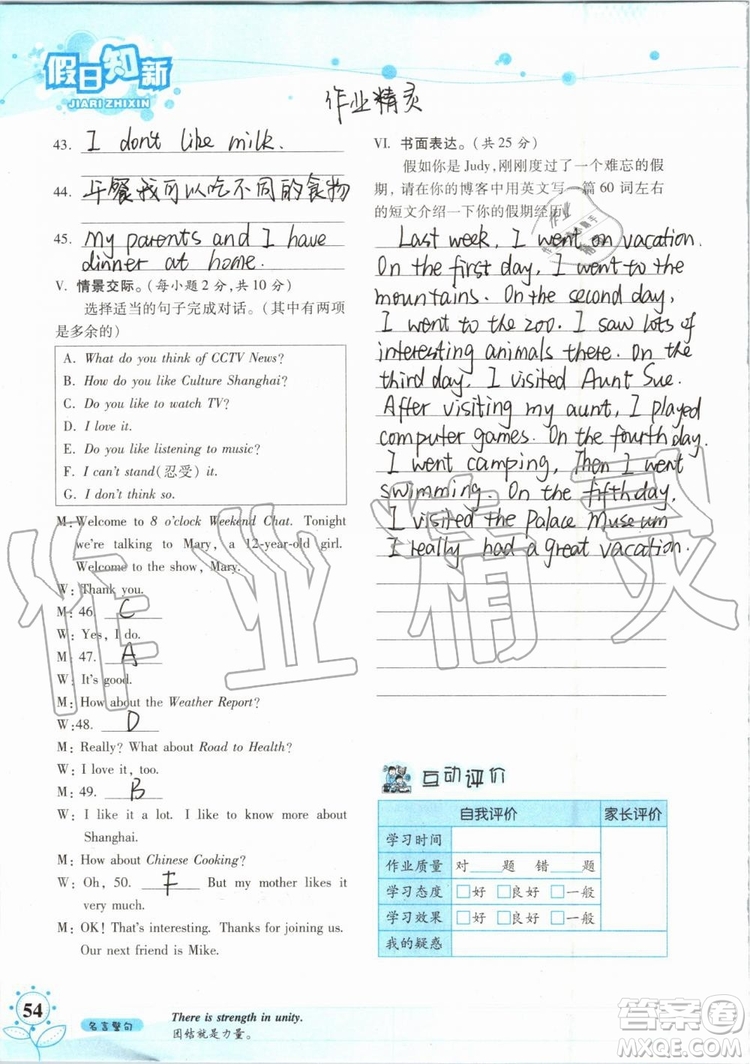 假日知新
JIARI ZHIXIN
作业精灵
43. I don't like milk.
44. 午餐我可以吃不同的食物
45. My parents and I have
dinner at home.
V. 情景交际。(每小题2分,共10分)
选择适当的句子完成对话。(其中有两项
是多余的)
A. What do you think of CCTV News?
B. How do you like Culture Shanghai?
C. Do you like to watch TV?
D. I love it.
E. Do you like listening to music?
F. I can't stand(忍受) it.
G. I don't think so.
M: Welcome to 8 o'clock Weekend Chat. Tonight
we're talking to Mary, a 12-year-old girl.
Welcome to the show, Mary.
W: Thank you.
M: 46. C
W: Yes, I do.
M: 47. A
W: It's good.
M: How about the Weather Report?
W: 48. D
M: Really? What about Road to Health?
W: I love it, too.
M: 49. B
W: I like it a lot. I like to know more about
Shanghai.
M: How about Chinese Cooking?
W: Oh, 50. F But my mother likes it
very much.
M: OK! That's interesting. Thanks for joining us.
Our next friend is Mike.
VI. 书面表达。(共25分)
假如你是Judy,刚刚度过了一个难忘的假
期,请在你的博客中用英文写一篇60词左右
的短文介绍一下你的假期经历。
Last week, I went on vacation.
On the first day, I went to the
mountains. On the second day,
I went to the zoo. I saw lots of
interesting animals there. On the
third day, I visited Aunt Sue.
After visiting my aunt, I played
computer games. On the fourth day,
I went camping, Then I went
swimming. On the fifth day,
I visited the Palace Museum
I really had a great vacation.
作业精灵
互动评价
自我评价 家长评价
学习时间
作业质量 对 题 错 题
学习态度 □好 □良好 □一般
学习效果 □好 □良好 □一般
我的疑惑
54
名言警句
There is strength in unity.
团结就是力量。
答案圈
MXQE.COM